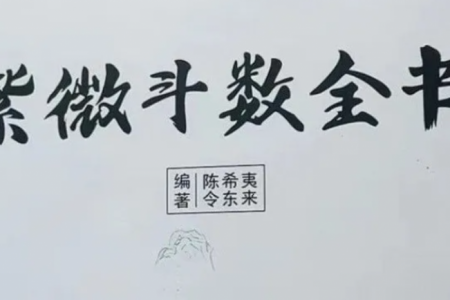 紫微斗数全书
编著 陈希夷
令东来